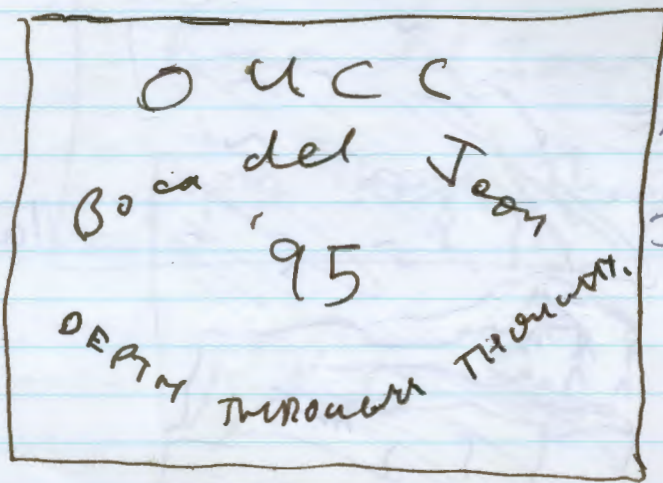 OUCC
Boca del Joon
'95
DEPTH THROUGH THOUGHT.